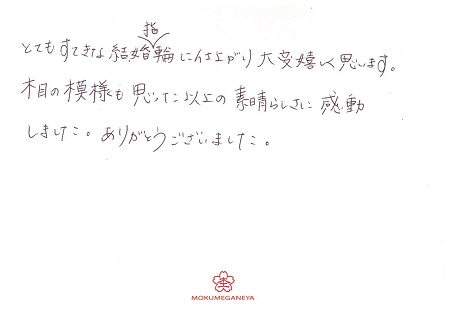 とてもすてきな結婚指輪に仕上がり大変嬉しく思います。
木目の模様も思った以上の素晴らしさに感動
しました。ありがとうございました。
MOKUMEGANEYA